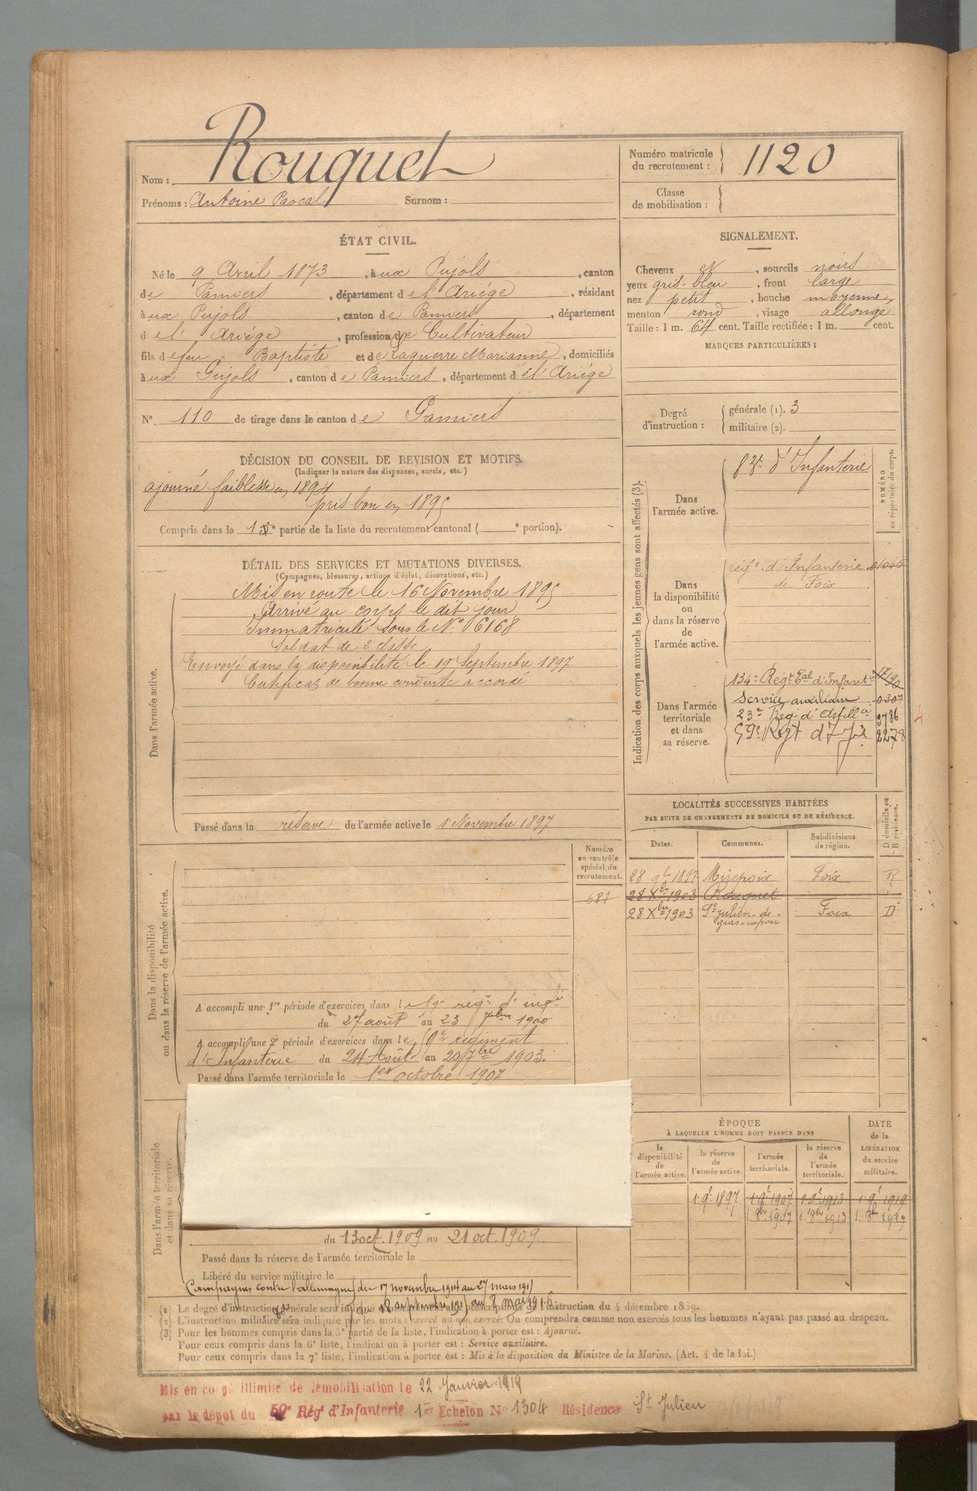 Rouquet
Nom :
Prénoms : Antoine Pascal Surnom :
Numéro matricule du recrutement : 1120
Classe de mobilisation :
ÉTAT CIVIL.
Né le 9 Avril 1873, à ux Pujols, canton
de Pamiers, département de l'Ariége, résidant
à ux Pujols, canton de Pamiers, département
d e l'Ariége, profession de Cultivateur
fils de feu Baptiste et de Laguerre Marianne, domiciliés
à ux Pujols, canton de Pamiers, département de l'Ariége
N° 110 de tirage dans le canton de Pamiers
SIGNALEMENT.
Cheveux et, sourcils noirs
yeux gris-bleu, front large
nez petit, bouche moyenne,
menton rond, visage allongé
Taille : 1 m. 64 cent. Taille rectifiée : 1 m. cent.
MARQUES PARTICULIÈRES :
Degré d'instruction : générale (1). 3
militaire (2).
DÉCISION DU CONSEIL DE REVISION ET MOTIFS.
(Indiquer la nature des dispenses, sursis, etc.)
ajourné faiblesse en 1894
pris bon en 1895
Compris dans la partie de la liste du recrutement cantonal ( e portion).
DÉTAIL DES SERVICES ET MUTATIONS DIVERSES.
(Campagnes, blessures, actions d'éclat, décorations, etc.)
Dans l'armée active.
Mis en route le 16 Novembre 1895
Arrivé au corps le dit jour
Immatriculé sous le N° 6168
Soldat de 2e classe
Envoyé dans la disponibilité le 19 Septembre 1897
Certificat de bonne conduite accordé
Passé dans la réserve de l'armée active le 1 Novembre 1897
Indication des corps auxquels les jeunes gens sont affectés (3).
NUMÉRO au répertoire du corps.
Dans l'armée active.
83e d'Infanterie
Dans la disponibilité ou dans la réserve de l'armée active.
régt d'Infanterie
de Foix
Dans l'armée territoriale et dans sa réserve.
134e Regt Eal d'Infant
Service auxiliaire
23e Reg- d'Artillie 3786
59e Regt d'Inf 2278
LOCALITÉS SUCCESSIVES HABITÉES
PAR SUITE DE CHANGEMENTS DE DOMICILE OU DE RÉSIDENCE.
Dates. Communes. Subdivisions de région. D domicile ou R résidence.
28 9bre 1897 Mirepoix Foix R
28 Xbre 1903 Rouquet
28 Xbre 1903 St Julien-de-gras-capou Foix D
Numéro au contrôle spécial du recrutement.
681
Dans la disponibilité ou dans la réserve de l'armée active.
A accompli une 1re période d'exercices dans le 59e régt d'infie
du 27 août au 23 7bre 1900
A accompli une 2e période d'exercices dans le régiment
d'Infanterie du 24 Août au 20 7bre 1903.
Passé dans l'armée territoriale le 1er octobre 1907
Dans l'armée territoriale et dans sa réserve.
du 13 oct. 1909 au 21 oct. 1909
Passé dans la réserve de l'armée territoriale le
Libéré du service militaire le
Campagnes contre l'allemagne du 17 novembre 1914 au 27 mars 1915
du 18 septembre 1915 au 8 mai 1916
ÉPOQUE
À LAQUELLE L'HOMME DOIT PASSER DANS
la disponibilité de l'armée active.
la réserve de l'armée active.
l'armée territoriale.
la réserve de l'armée territoriale.
DATE de la LIBÉRATION du service militaire.
1 9e 1897 1 9e 1907 1 9e 1913 1 9e 1919
(1) Le degré d'instruction générale sera indiqué l'instruction du 4 décembre 1889.
(2) L'instruction militaire sera indiquée par les mots : exercé ou non exercé. On comprendra comme non exercés tous les hommes n'ayant pas passé au drapeau.
(3) Pour les hommes compris dans la 5e partie de la liste, l'indication à porter est : Ajourné.
Pour ceux compris dans la 6e liste, l'indication à porter est : Service auxiliaire.
Pour ceux compris dans la 7e liste, l'indication à porter est : Mis à la disposition du Ministre de la Marine. (Art. 4 de la loi.)
Mis en congé illimité de démobilisation le 22 Janvier 1919
par le dépôt du 59e Régt d'Infanterie 1er Echelon N° 1304 Résidence St Julien